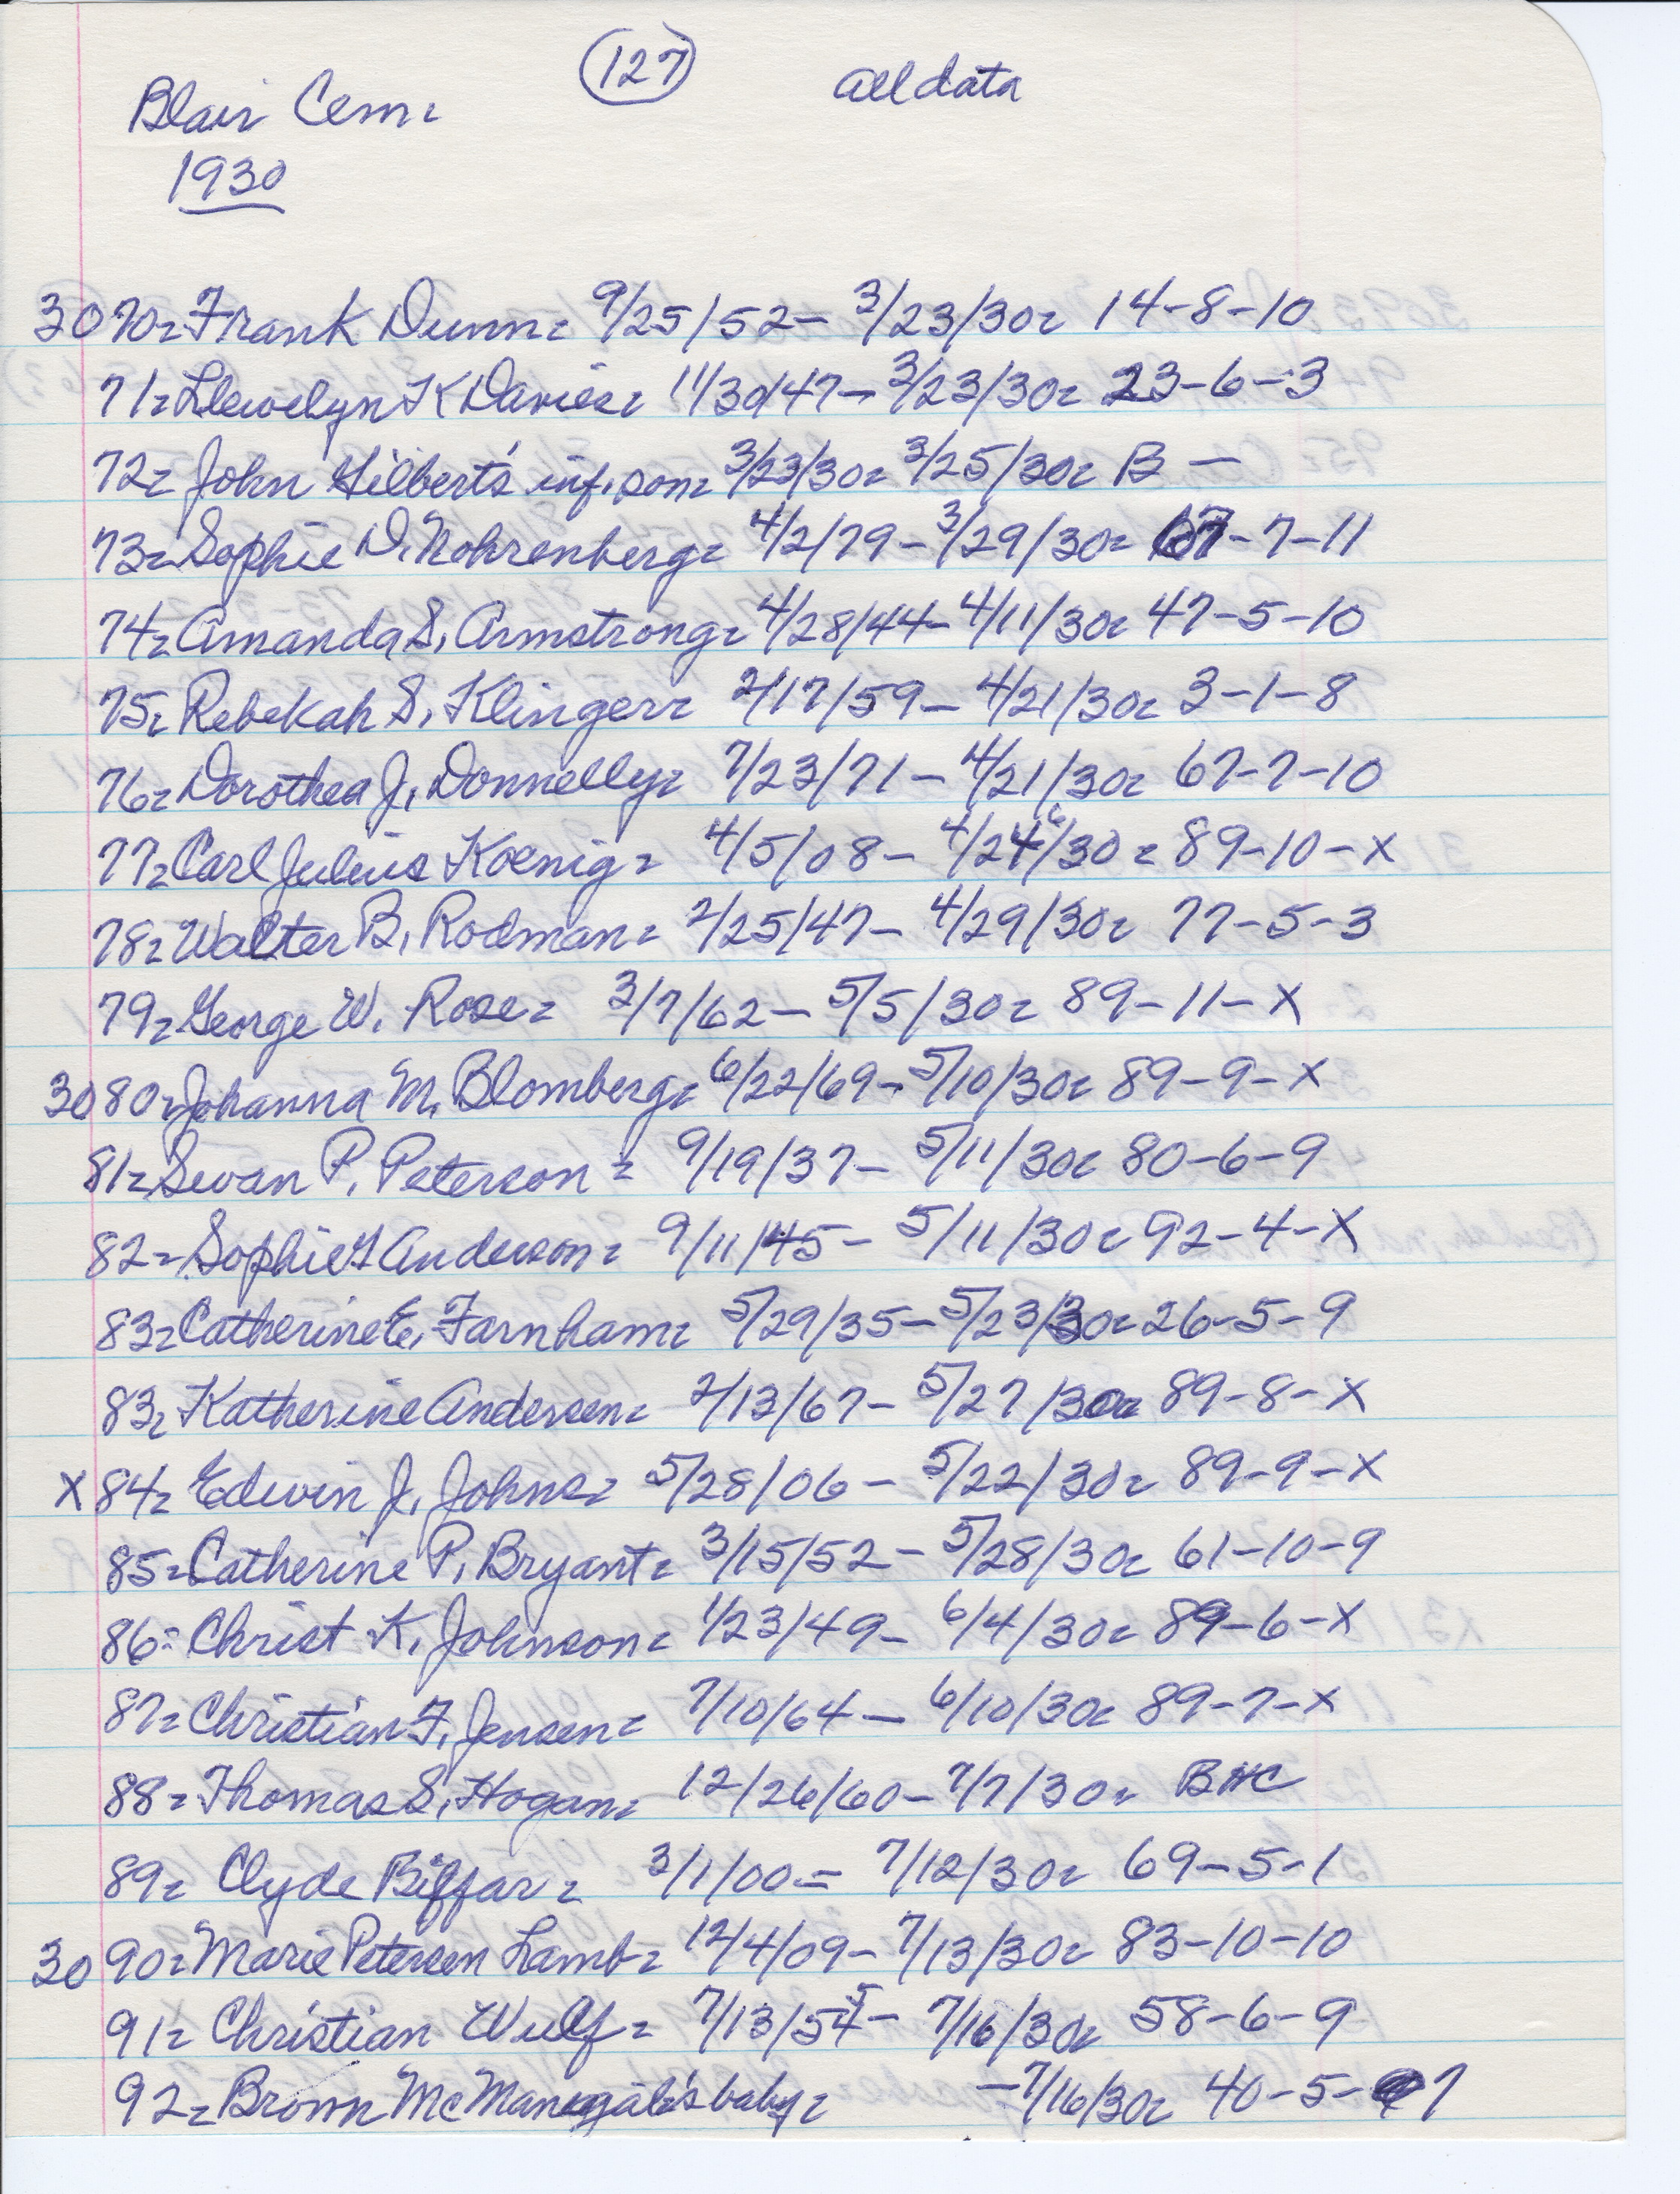 (127)
all data
Blair Cem.
1930
3070= Frank Dunn= 9/25/52- 3/23/30= 14-8-10
71= Llewelyn K Davies= 11/30/47- 3/23/30= 23-6-3
72= John Gilbert's inf. son= 3/23/30= 3/25/30= B -
73= Sophie D. Nohrenberg= 4/2/79-3/29/30= -7-11
74= Amanda S. Armstrong= 4/28/44- 4/11/30= 47-5-10
75= Rebekah S. Klinger= 2/17/59- 4/21/30= 3-1-8
76= Dorothea J. Donnelly= 7/23/71- 4/21/30= 67-7-10
77= Carl Julius Koenig= 4/5/08- /30= 89-10-X
78= Walter B. Rodman= 2/25/47- 4/29/30= 77-5-3
79= George W. Rose= 3/7/62- 5/5/30= 89-11-X
3080= Johanna M. Blomberg= 6/22/69- 5/10/30= 89-9-X
81= Swan P. Peterson= 9/19/37- 5/11/30= 80-6-9
82= Sophie Anderson= 9/11/45- 5/11/30= 92-4-X
83= Catherine E. Farnham= 5/29/35- 5/23/30= 26-5-9
83= Katherine Andersen= 2/13/67- 5/27/30= 89-8-X
X 84= Edwin J. Johns= 5/28/06- 5/22/30= 89-9-X
85= Catherine P. Bryant= 3/15/52- 5/28/30= 61-10-9
86= Christ K. Johnson= 1/23/49- 6/4/30= 89-6-X
87= Christian F. Jensen= 7/10/64- 6/10/30= 89-7-X
88= Thomas S. Hogan= 12/26/60- 7/7/30= BHC
89= Clyde Biffar= 3/1/00= 7/12/30= 69-5-1
3090= Marie Petersen Lamb= 12/4/09- 7/13/30= 83-10-10
91= Christian Wulf= 7/13/54 5- 7/16/30= 58-6-9
92= Brown McManigal's baby= -7/16/30= 40-5-7